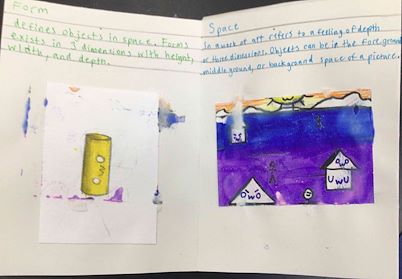 Form
defines objects in space. Forms
exists in 3 dimensions with height,
width, and depth.
Space
In a work of art refers to a feeling of depth
or three dimensions. Objects can be in the fore ground
middle ground, or background space of a picture.
OwO
OwO
UwU
OwO